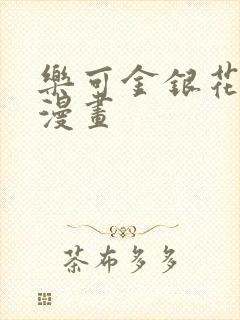 樂可金銀花
漫畫
茶布多多